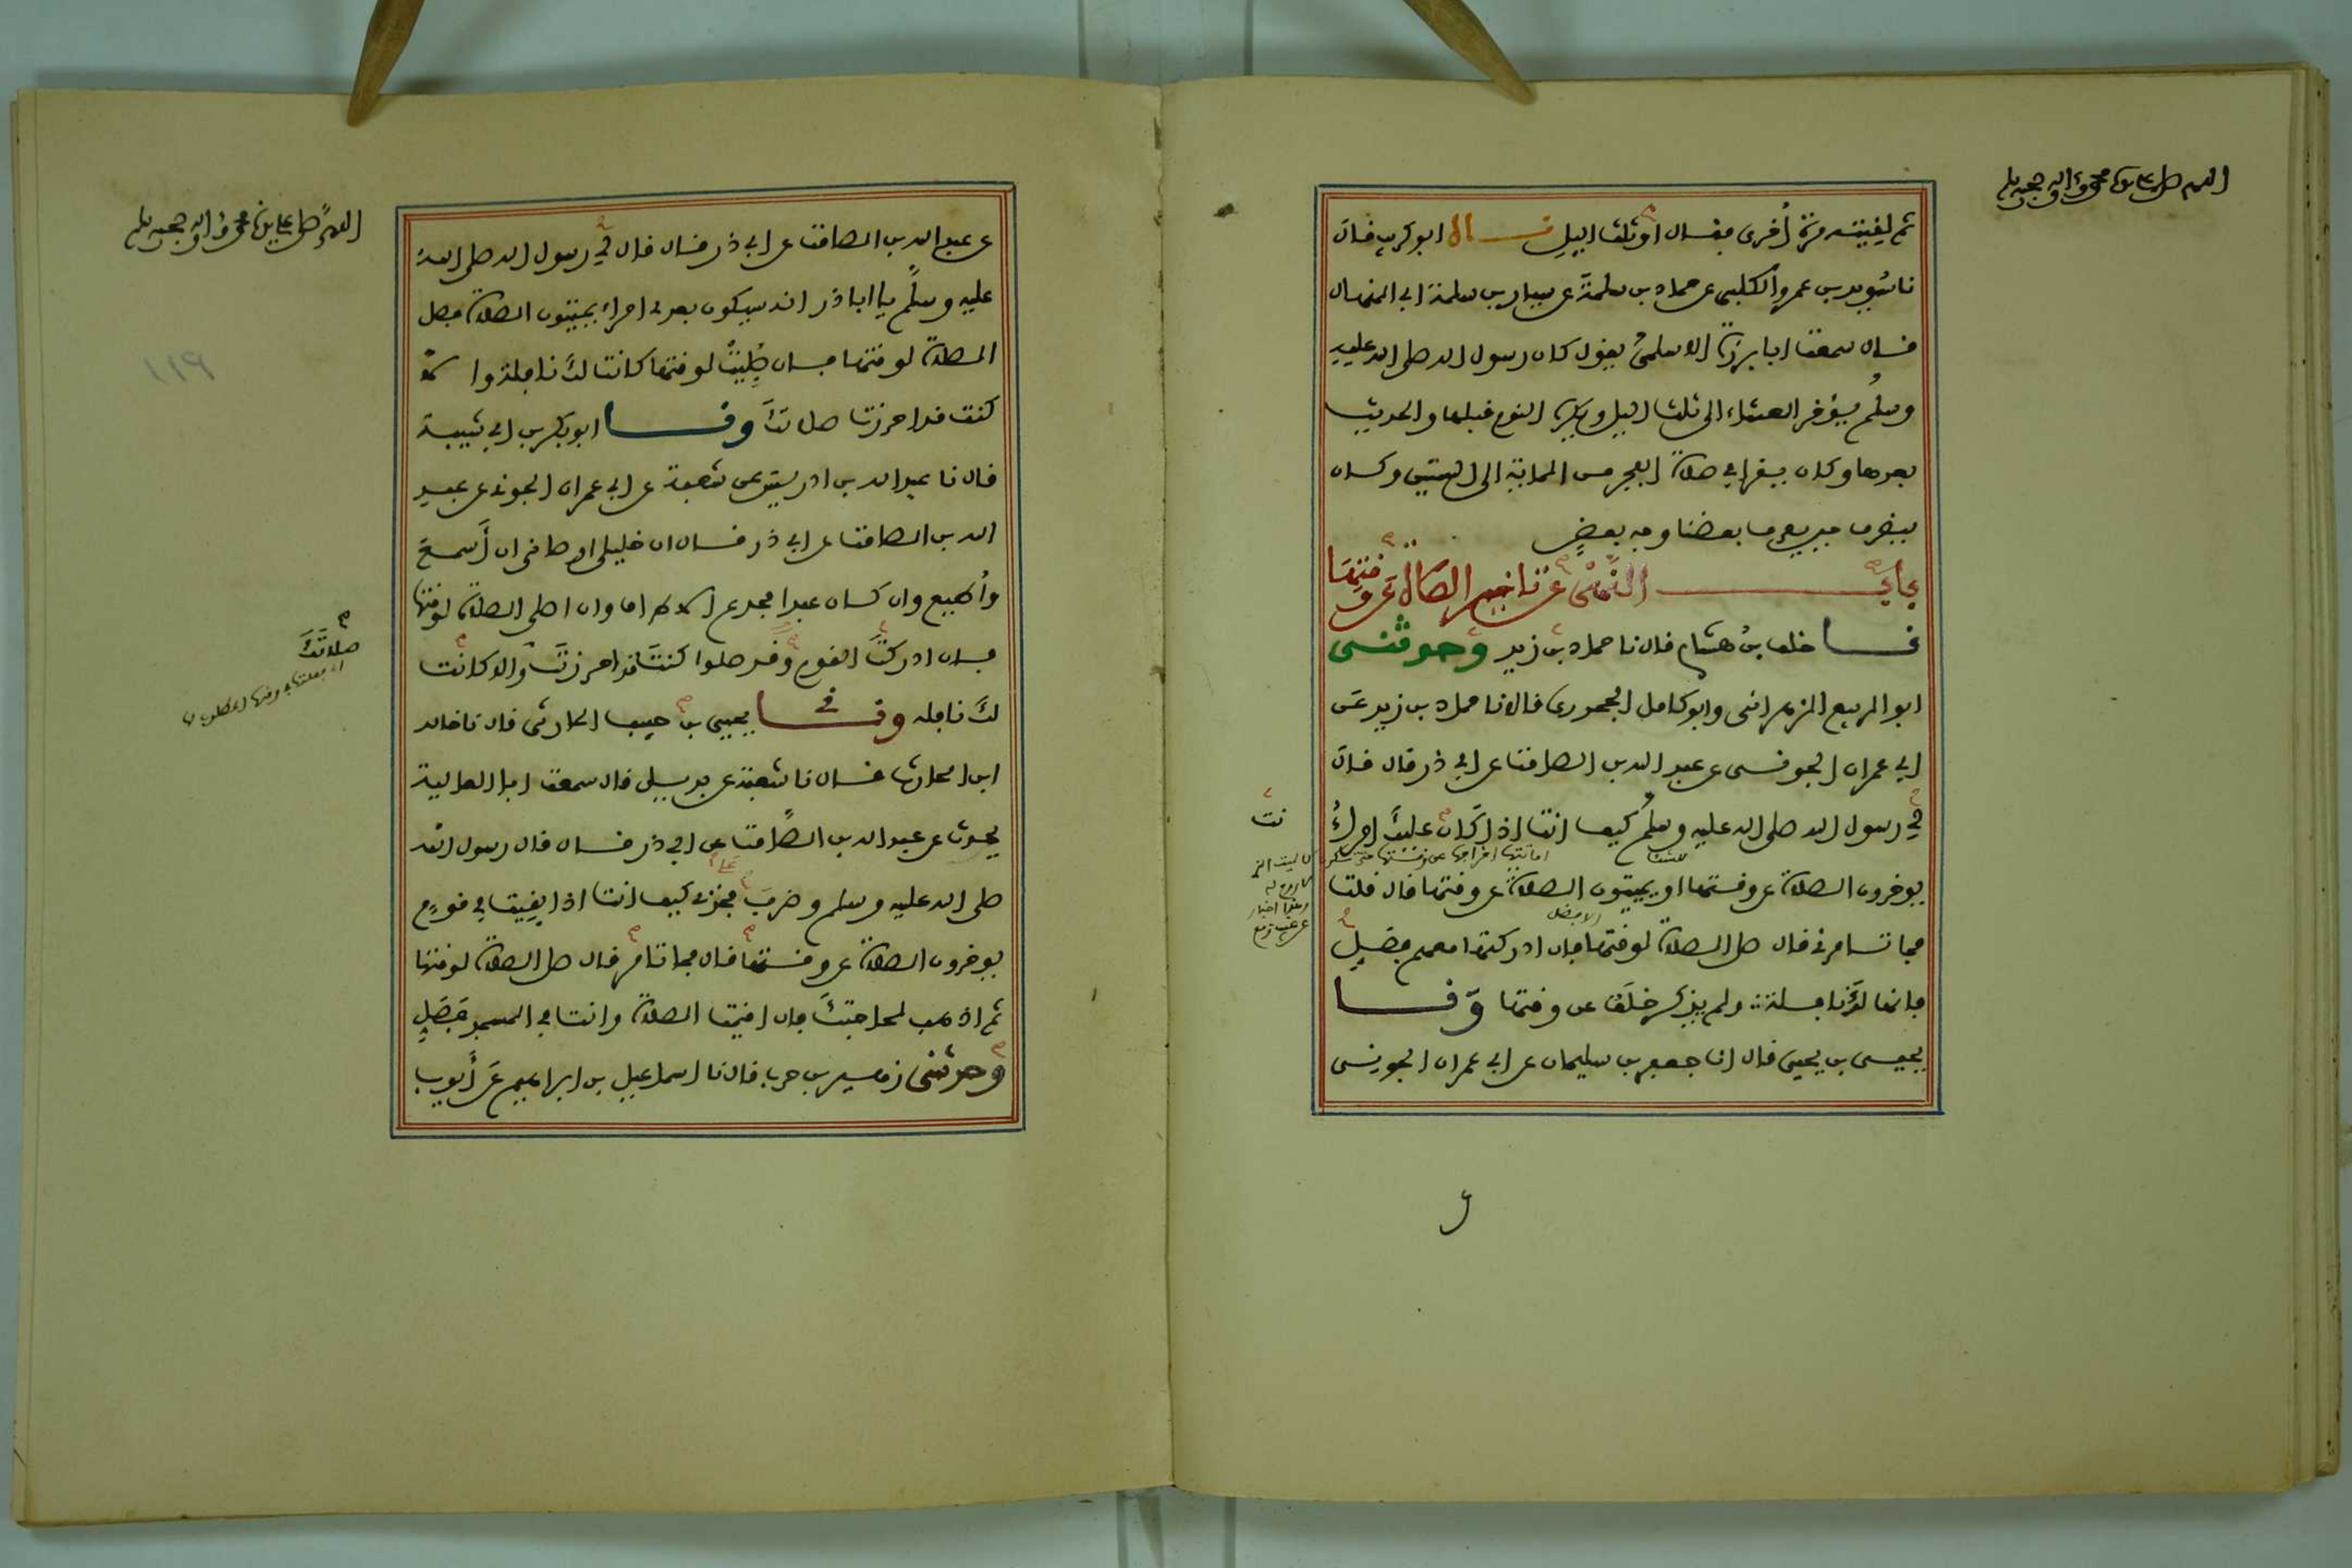 اللهم صل على سيدنا محمد وءاله وصحبه وسلم
ثم لقيته مرة أخرى فقال او ثلث اليل قال ابو كريب قال
نا سويد بن عمرو الكلبي عن حماد بن سلمة عن سيار بن سلمة ابي المنهال
قال سمعت ابا برزة الاسلمي يقول كان رسول الله صلى الله عليه
وسلم يؤخر العشاء الى ثلث اليل ويكره النوم قبلها والحديث
بعدها وكان يقرا في صلاة الفجر من المائة الى الستين وكان
ينصرف حين يعرف بعضنا وجه بعض
باب النهي عن تاخير الصلاة عن وقتها
نا خلف بن هشام قال نا حماد بن زيد وحدثني
ابو الربيع الزهراني وابو كامل الجحدري قالا نا حماد بن زيد عن
ابي عمران الجوني عن عبد الله بن الصامت عن ابي ذر قال قال
لي رسول الله صلى الله عليه وسلم كيف انت اذا كان عليك امراء
يوخرون الصلاة عن وقتها او يميتون الصلاة عن وقتها قال قلت
فما تامرني قال صل الصلاة لوقتها فان ادركتها معهم فصل
فانها لك نافلة ولم يذكر خلف عن وقتها ونا
يحيى بن يحيى قال انا جعفر بن سليمان عن ابي عمران الجوني
اللهم صل على سيدنا محمد وءاله وصحبه وسلم
عن عبد الله بن الصامت عن ابي ذر قال قال لي رسول الله صلى الله
عليه وسلم يا ابا ذر انه سيكون بعدي امراء يميتون الصلاة فصل
الصلاة لوقتها فان صليت لوقتها كانت لك نافلة والا
كنت قد احرزت صلاتك ونا ابو بكر بن ابي شيبة
قال نا عبد الله بن ادريس عن شعبة عن ابي عمران الجوني عن عبد
الله بن الصامت عن ابي ذر قال ان خليلي اوصاني ان أسمع
وأطيع وان كان عبدا مجدع الاطراف وان اصلي الصلاة لوقتها
فان ادركت القوم وقد صلوا كنت قد احرزت والا كانت
صلاتك
لك نافلة ونا يحيى بن حبيب الحارثي قال نا خالد
ابن الحارث قال نا شعبة عن بديل قال سمعت ابا العالية
يحدث عن عبد الله بن الصامت عن ابي ذر قال قال رسول الله
صلى الله عليه وسلم وضرب فخذي كيف انت اذا بقيت في قوم
يوخرون الصلاة عن وقتها قال فما تامر قال صل الصلاة لوقتها
ثم اذهب لحاجتك فان اقيمت الصلاة وانت في المسجد فصل
وحدثني زهير بن حرب قال نا اسماعيل بن ابراهيم عن أيوب
١١٩